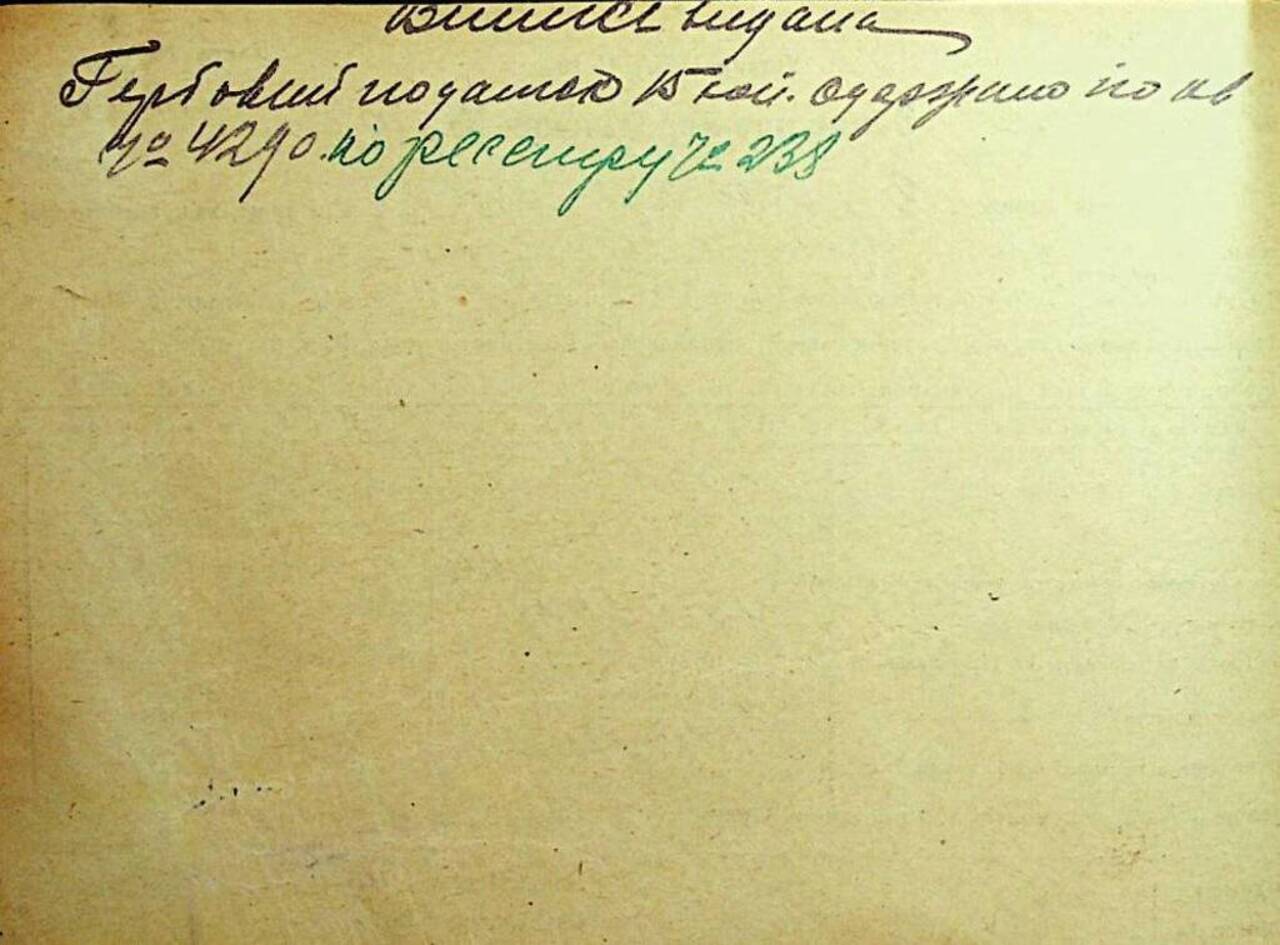 Виписъ видана
Гербовий податок 15 коп. одержано по кв
№ 4290. по реєстру № 238